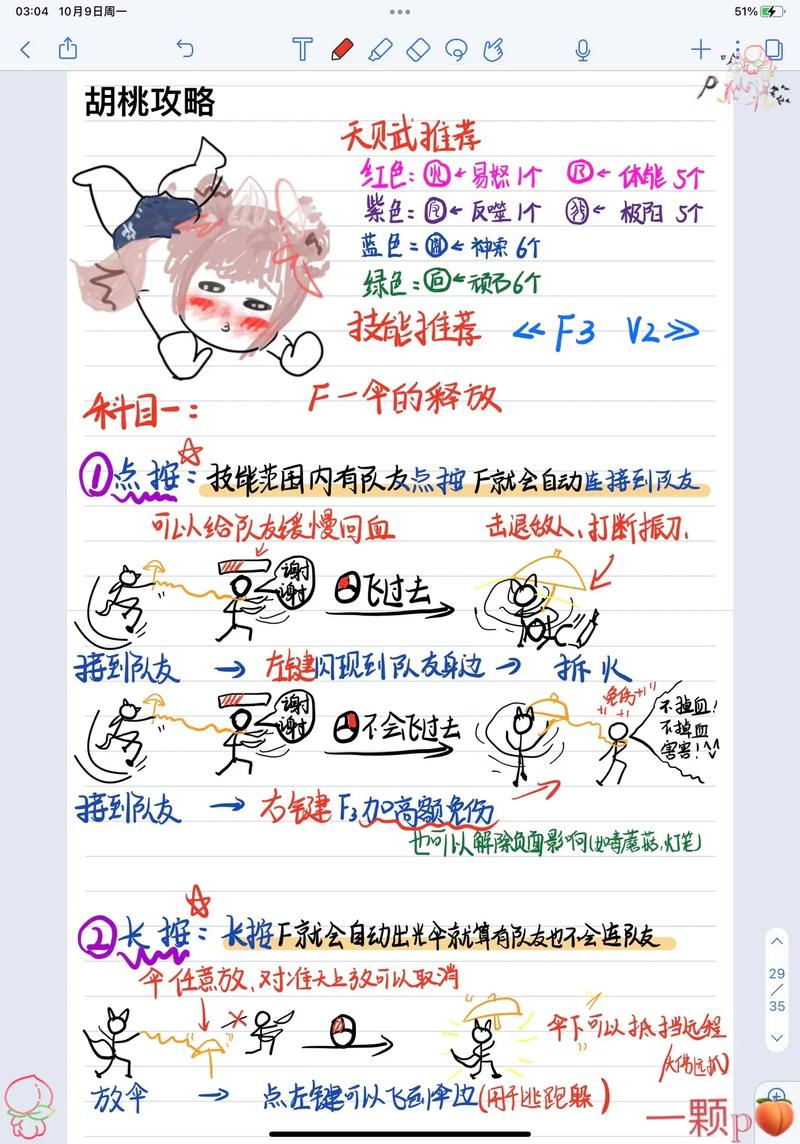 03:04 10月9日周一
51%
胡桃攻略
天赋推荐
红色：火←易怒1个 
←体能 5个
紫色： ←反噬1个 
←极阳 5个
蓝色： ←神索 6个
绿色： ←顽石6个
技能推荐 << F3 V2 >>
科目一： F—伞的释放
①点按：技能范围内有队友点按F就会自动连接到队友
可以给队友缓慢回血
击退敌人、打断振刀.
谢谢
飞过去
接到队友 → 左键闪现到队友身边 → 拆火
谢谢
不会飞过去
免伤+1
不掉血!
不掉血
害害!
接到队友 → 右键F3加高额免伤
也可以解除负面影响(如毒蘑菇,灯笼)
②长按：长按F就会自动出光伞就算有队友也不会连队友
伞任意放、对准天上放可以取消
伞下可以抵挡远程
放伞 → 点左键可以飞到伞边(用于逃跑躲)
29
35
一颗p